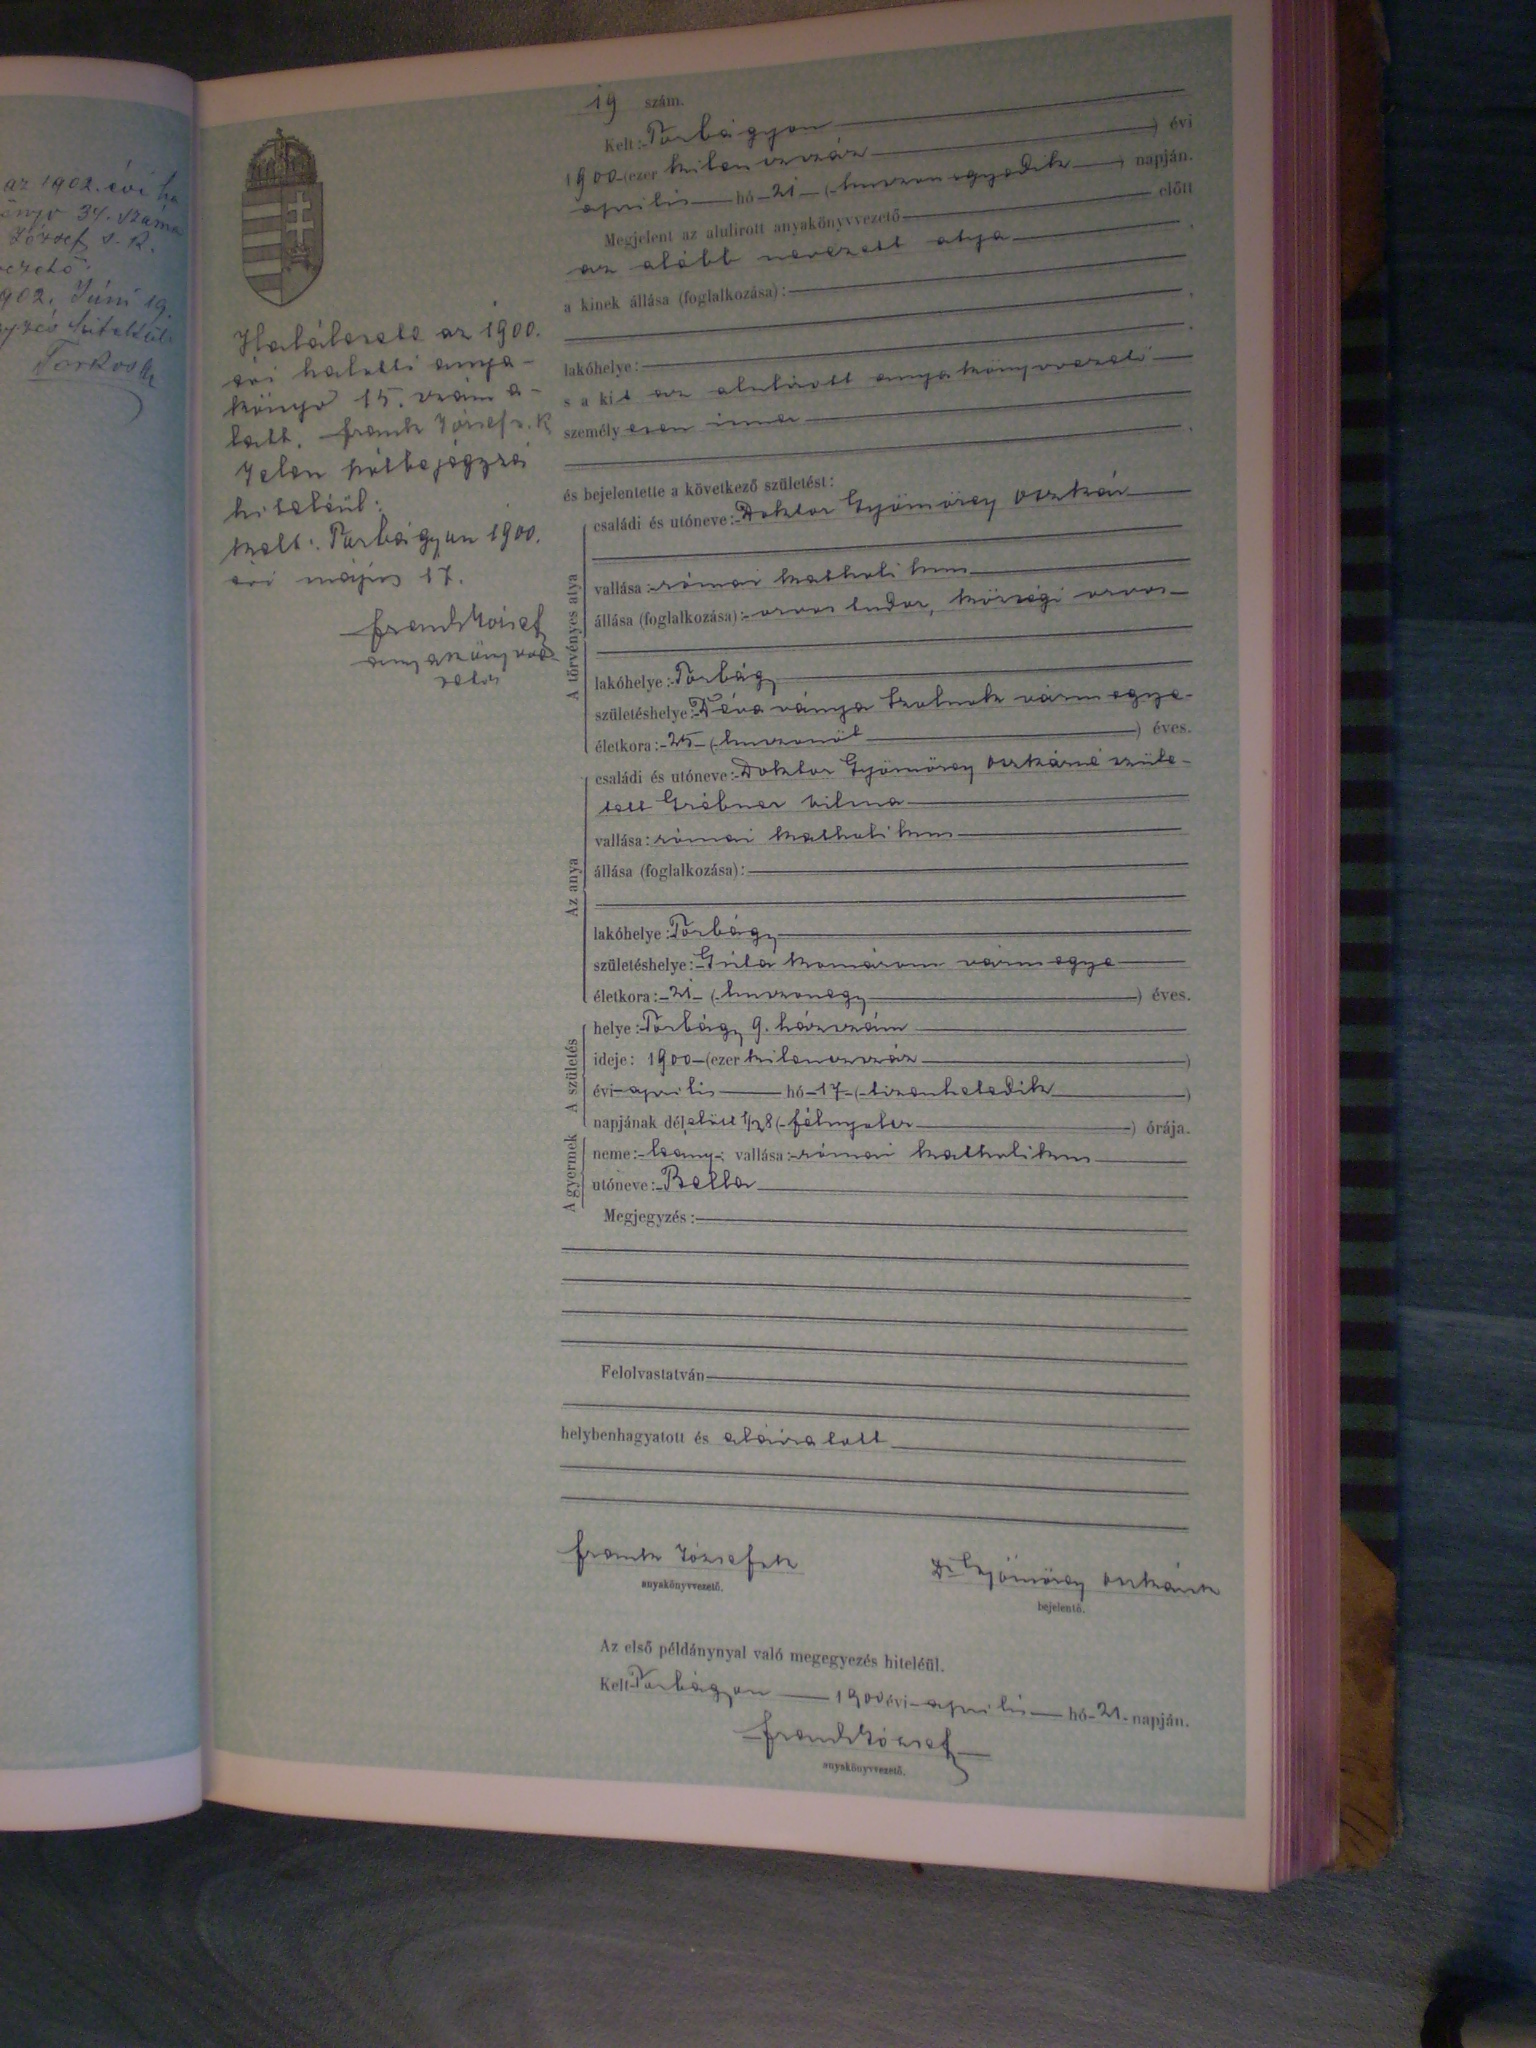 az 1902. évi ha
34. száma
József s. k.
vezető.
902. Júni 19.
Torkos
Halálesete az 1900.
évi halotti anya-
könyv 15. szám a-
latt. Frank József s. k.
Jelen hátbejegyzés
hiteléül:
Kelt: Torbágyon 1900.
évi május 17.
Frank József
anyakönyvve-
zető
19 szám.
Kelt: Torbágyon
1900 (ezer kilenczszáz ) évi
április hó 21 (huszonegyedik ) napján.
Megjelent az alulirott anyakönyvvezető előtt
az alább nevezett atya ,
a kinek állása (foglalkozása):
,
lakóhelye: ,
s a kit az alulirott anyakönyvvezető
személyesen ismer
,
és bejelentette a következő születést:
A törvényes atya
családi és utóneve: Doktor Gyömörey Oszkár
vallása: római katholikus
állása (foglalkozása): orvos tudor, községi orvos
lakóhelye: Torbágy
születéshelye: Dévaványa Szolnok vármegye
életkora: 25 (huszonöt ) éves.
Az anya
családi és utóneve: Doktor Gyömörey Oszkárné szüle-
tett Grébner Vilma
vallása: római katholikus
állása (foglalkozása):
lakóhelye: Torbágy
születéshelye: komárom vármegye
életkora: 21 (huszonegy ) éves.
A születés
helye: Torbágy 9. házszám
ideje: 1900 (ezer kilenczszáz )
évi április hó 17 (tizenhetedik )
napjának délelőtt 1/28 (félnyolcz ) órája.
A gyermek
neme: leány; vallása: római katholikus
utóneve: Bella
Megjegyzés:
Felolvastatván
helybenhagyatott és aláiratott
Frank József sk Dr Gyömörey Oszkár sk
anyakönyvvezető. bejelentő.
Az első példánynyal való megegyezés hiteléül.
Kelt Torbágyon 1900 évi április hó 21 napján.
Frank József
anyakönyvvezető.